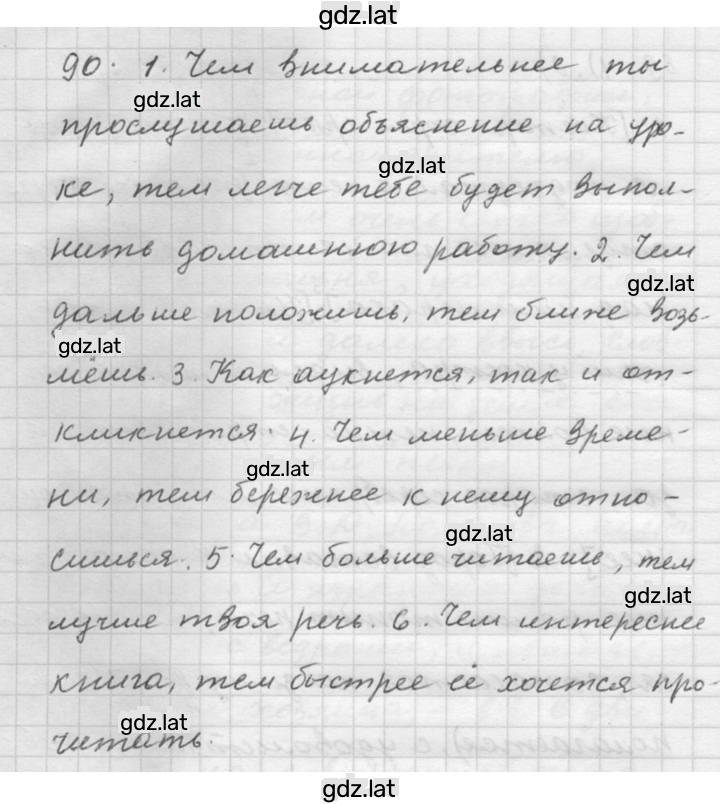 gdz.lat
90. 1. Чем внимательнее ты
gdz.lat
прослушаешь объяснение на уро-
gdz.lat
ке, тем легче тебе будет выпол-
нить домашнюю работу. 2. Чем
gdz.lat
дальше положишь, тем ближе возь-
gdz.lat
мёшь. 3. Как аукнется, так и от-
кликнется. 4. Чем меньше време-
gdz.lat
ни, тем бережнее к нему отно-
gdz.lat
сишься. 5. Чем больше читаешь, тем
gdz.lat
лучше твоя речь. 6. Чем интереснее
книга, тем быстрее её хочется про-
gdz.lat
читать.
gdz.lat